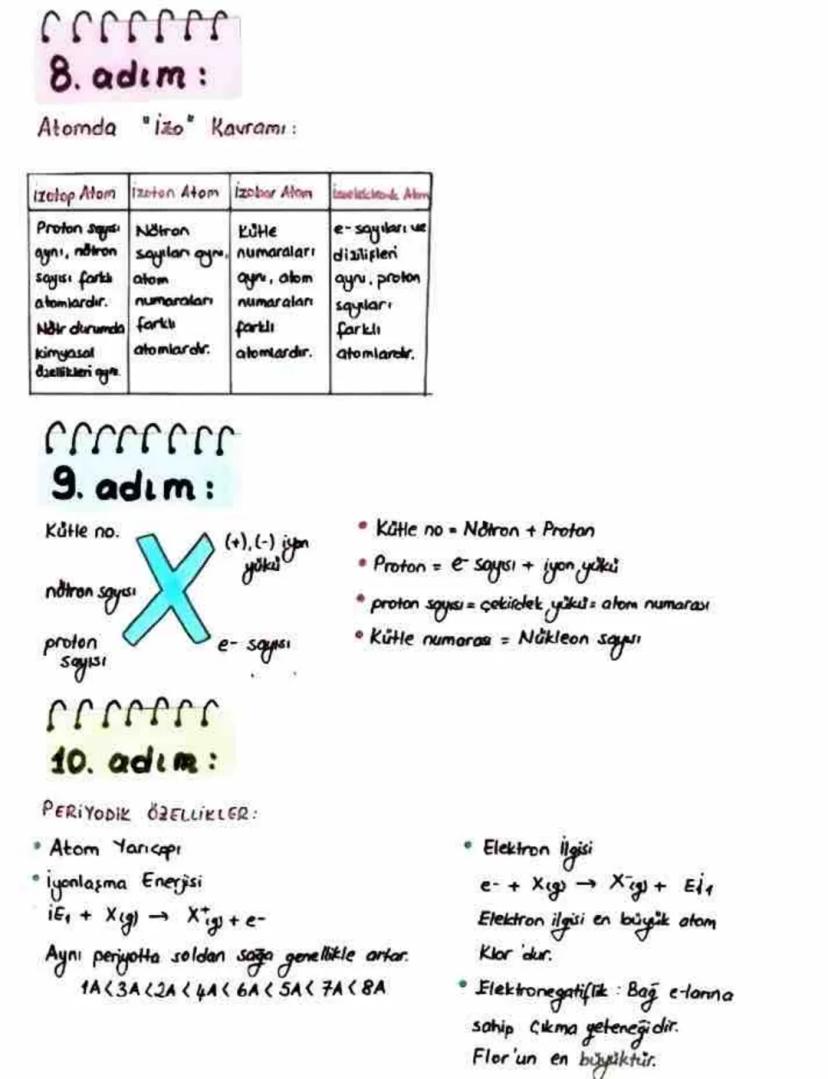 8. adım :
Atomda "İzo" Kavramı :
İzotop Atom
Proton sayısı
aynı, nötron
sayısı farklı
atomlardır.
Nötr durumda
kimyasal
özellikleri aynı.
İzoton Atom
Nötron
sayıları aynı,
atom
numaraları
farklı
atomlardır.
İzobar Atom
Kütle
numaraları
aynı, atom
numaraları
farklı
atomlardır.
İzoelektronik Atom
e- sayıları ve
dizilişleri
aynı, proton
sayıları
farklı
atomlardır.
9. adım :
Kütle no.
(+), (-) iyon
yükü
nötron sayısı
X
proton
sayısı
e- sayısı
• Kütle no = Nötron + Proton
• Proton = e- sayısı + iyon yükü
• proton sayısı = çekirdek yükü = atom numarası
• Kütle numarası = Nükleon sayısı
10. adım :
PERİYODİK ÖZELLİKLER :
• Atom Yarıçapı
• İyonlaşma Enerjisi
İE₁ + X(g) → X⁺(g) + e-
Aynı periyotta soldan sağa genellikle artar.
1A < 3A < 2A < 4A < 6A < 5A < 7A < 8A
• Elektron İlgisi
e- + X(g) → X⁻(g) + Eİ₁
Elektron ilgisi en büyük atom
Klor 'dur.
• Elektronegatiflik : Bağ e-larına
sahip çıkma yeteneğidir.
Flor'un en büyüktür.